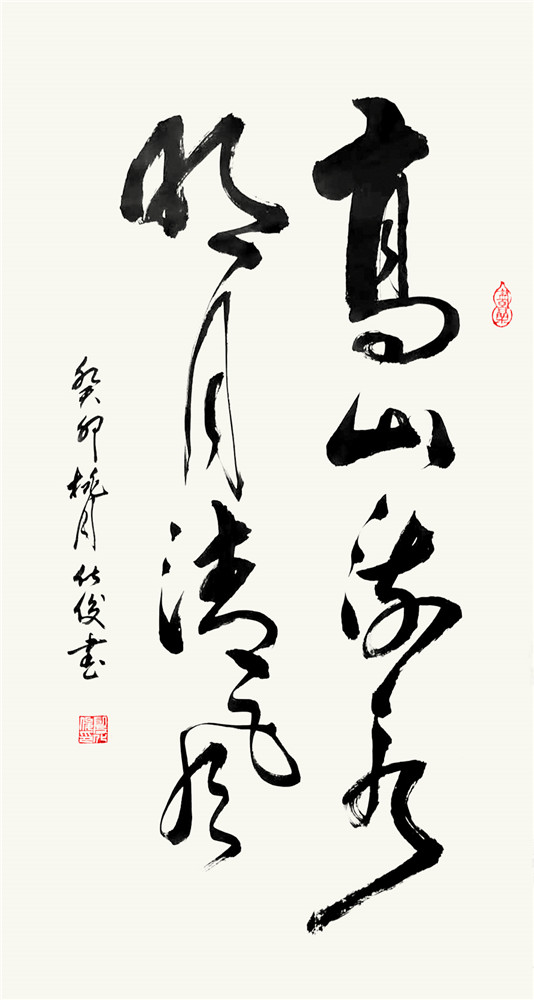 高山流水
明月清风
癸卯桃月化俊书